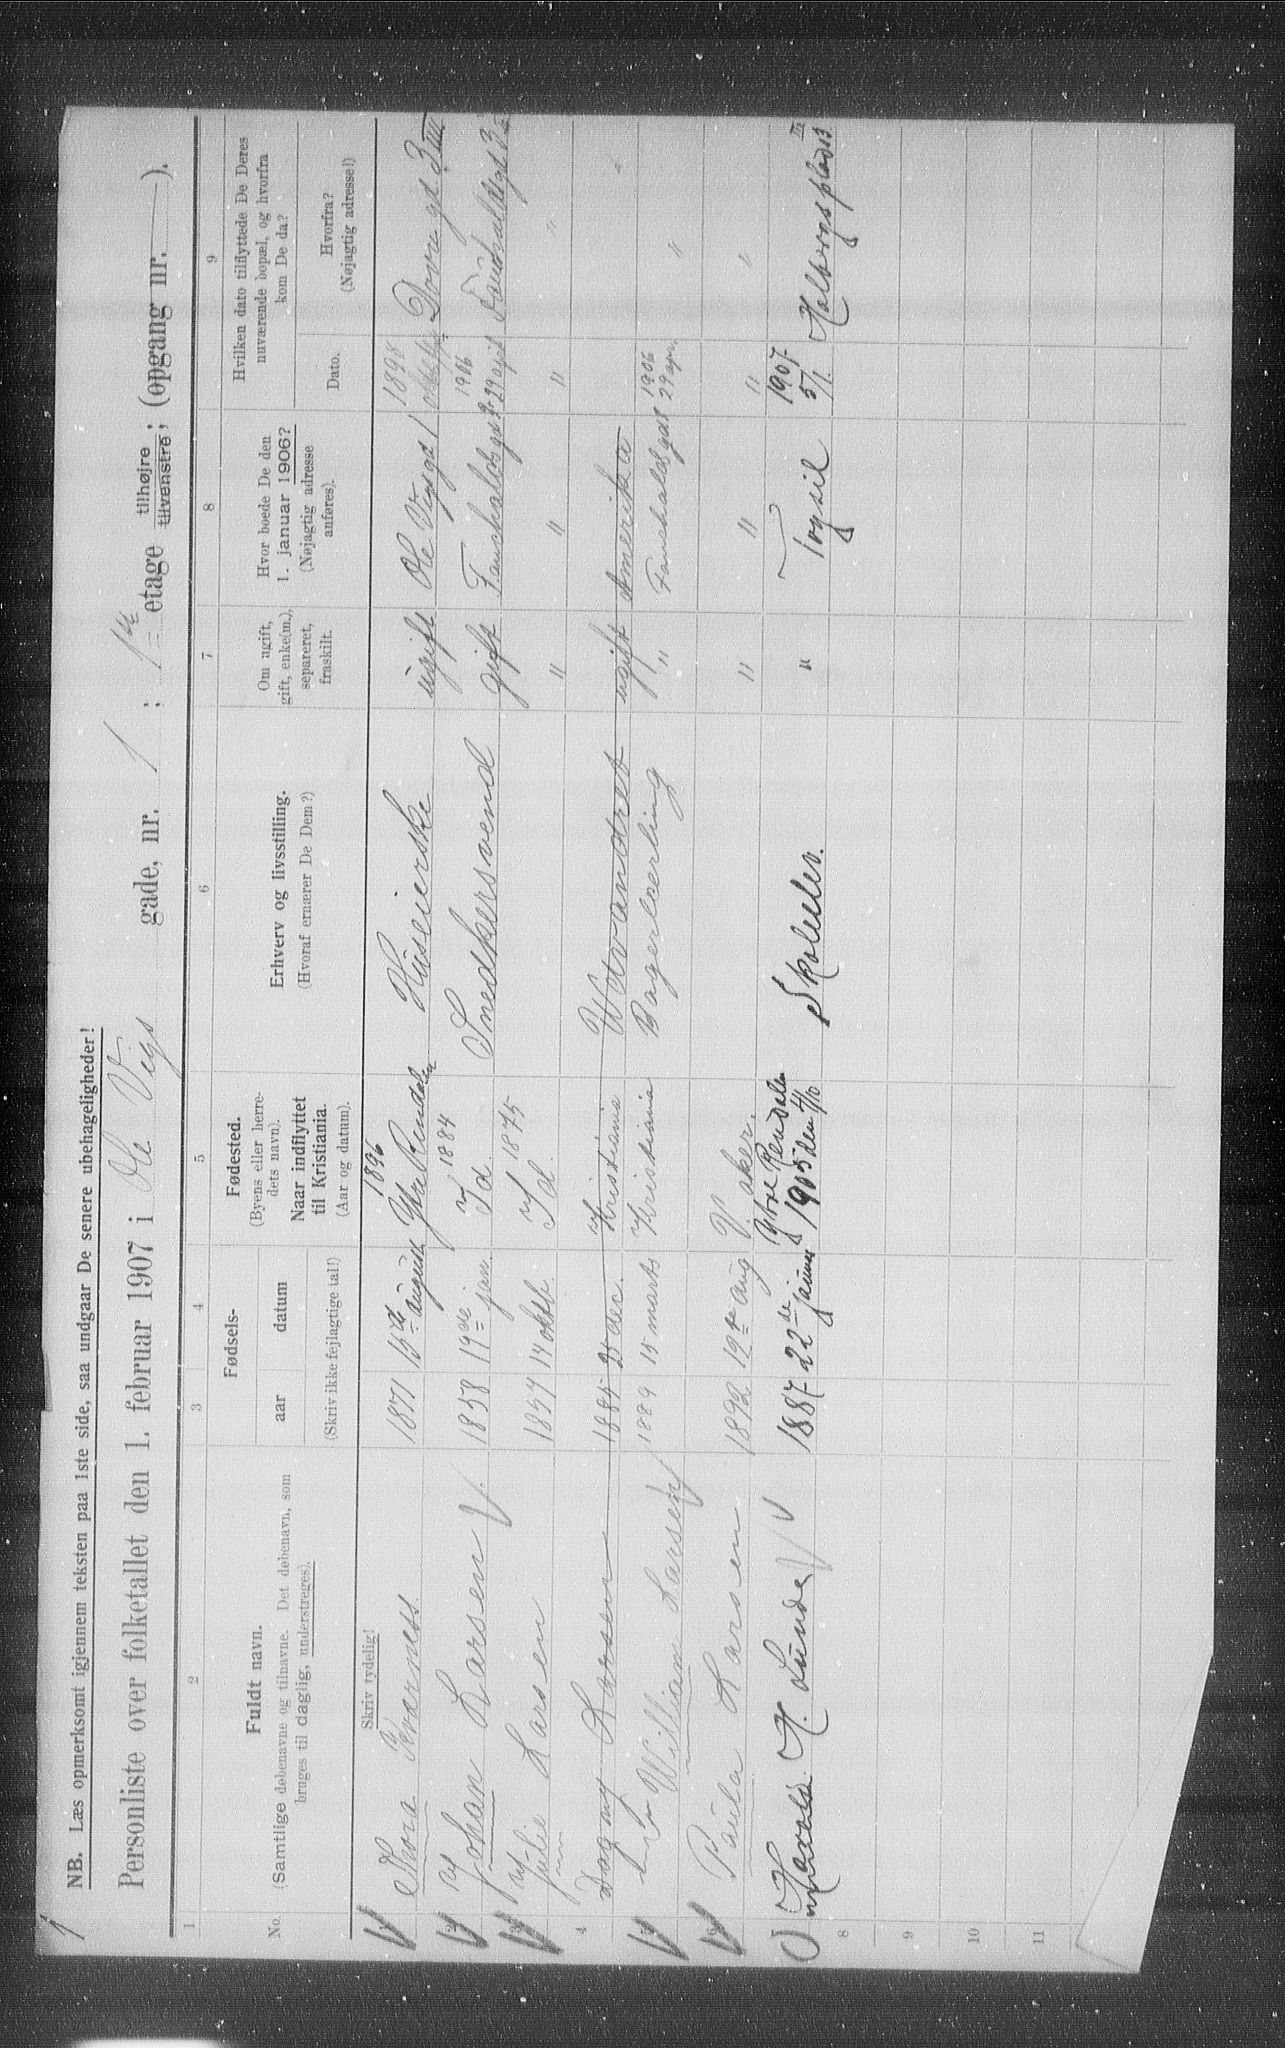 1
NB. Læs opmerksomt igjennem teksten paa 1ste side, saa undgaar De senere ubehageligheder!
Personliste over folketallet den 1. februar 1907 i Ole Vigs gade, nr. 1 ; 1ste etage tilhøjre tilvenstre; (opgang nr. — ).
1 2 3 4 5 6 7 8 9
No.
Fuldt navn.
(Samtlige døbenavne og tilnavne. Det døbenavn, som
bruges til daglig, understreges).
Fødsels-
aar datum
(Skriv ikke fejlagtige tal!)
Fødested.
(Byens eller herre-
dets navn).
Naar indflyttet
til Kristiania.
(Aar og datum).
Erhverv og livsstilling.
(Hvoraf ernærer De Dem?)
Om ugift,
gift, enke(m.),
separeret,
fraskilt.
Hvor boede De den
1. januar 1906?
(Nøjagtig adresse
anføres).
Hvilken dato tilflyttede De Deres
nuværende bopæl, og hvorfra
kom De da?
Dato.
Hvorfra?
(Nøjagtig adresse!)
Skriv tydelig!
Thora 1871 15de august 1896 Ytre Rendalen Huseierske ugift Ole Vigs gd 1 1898 Dovre gd. 3
Johan Larsen 1858 19de jan. Id 1884 Snedkersvend gift Fauchalds gd 1906 29 april Fauchalds gd 3
Julie Larsen 1854 14 oktb. Id. 1875 " " " "
4 Dagny Larsen 1885 25 dec. Kristiania Udvandret ugift Amerika "
William Larsen 1889 15 marts Kristiania Bagerlærling " Fauchalds gd 1906 29 apr. "
Paula Larsen 1892 19de aug V. aker. " " " "
Harald H. Lunde 1887 22de januar Ytre Rendalen 1905 den 4/10 Skoleelev. " Trysil 1907 5/1. Holbergsplads 3 III
8
9
10
11